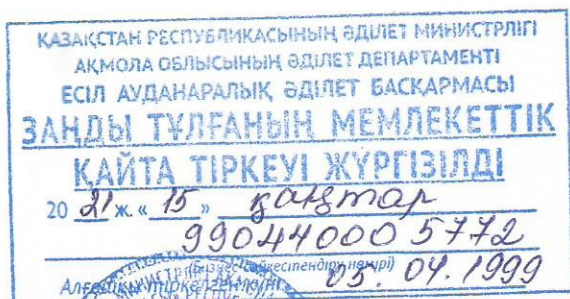 ҚАЗАҚСТАН РЕСПУБЛИКАСЫНЫҢ ӘДІЛЕТ МИНИСТРЛІГІ
АҚМОЛА ОБЛЫСЫНЫҢ ӘДІЛЕТ ДЕПАРТАМЕНТІ
ЕСІЛ АУДАНАРАЛЫҚ ӘДІЛЕТ БАСҚАРМАСЫ
ЗАҢДЫ ТҰЛҒАНЫҢ МЕМЛЕКЕТТІК
ҚАЙТА ТІРКЕУІ ЖҮРГІЗІЛДІ
20 21 ж. « 15 » қаңтар
990440005772
(бизнес-сәйкестендіру нөмірі)
Алғашқы тіркелген күні 05. 04. 1999